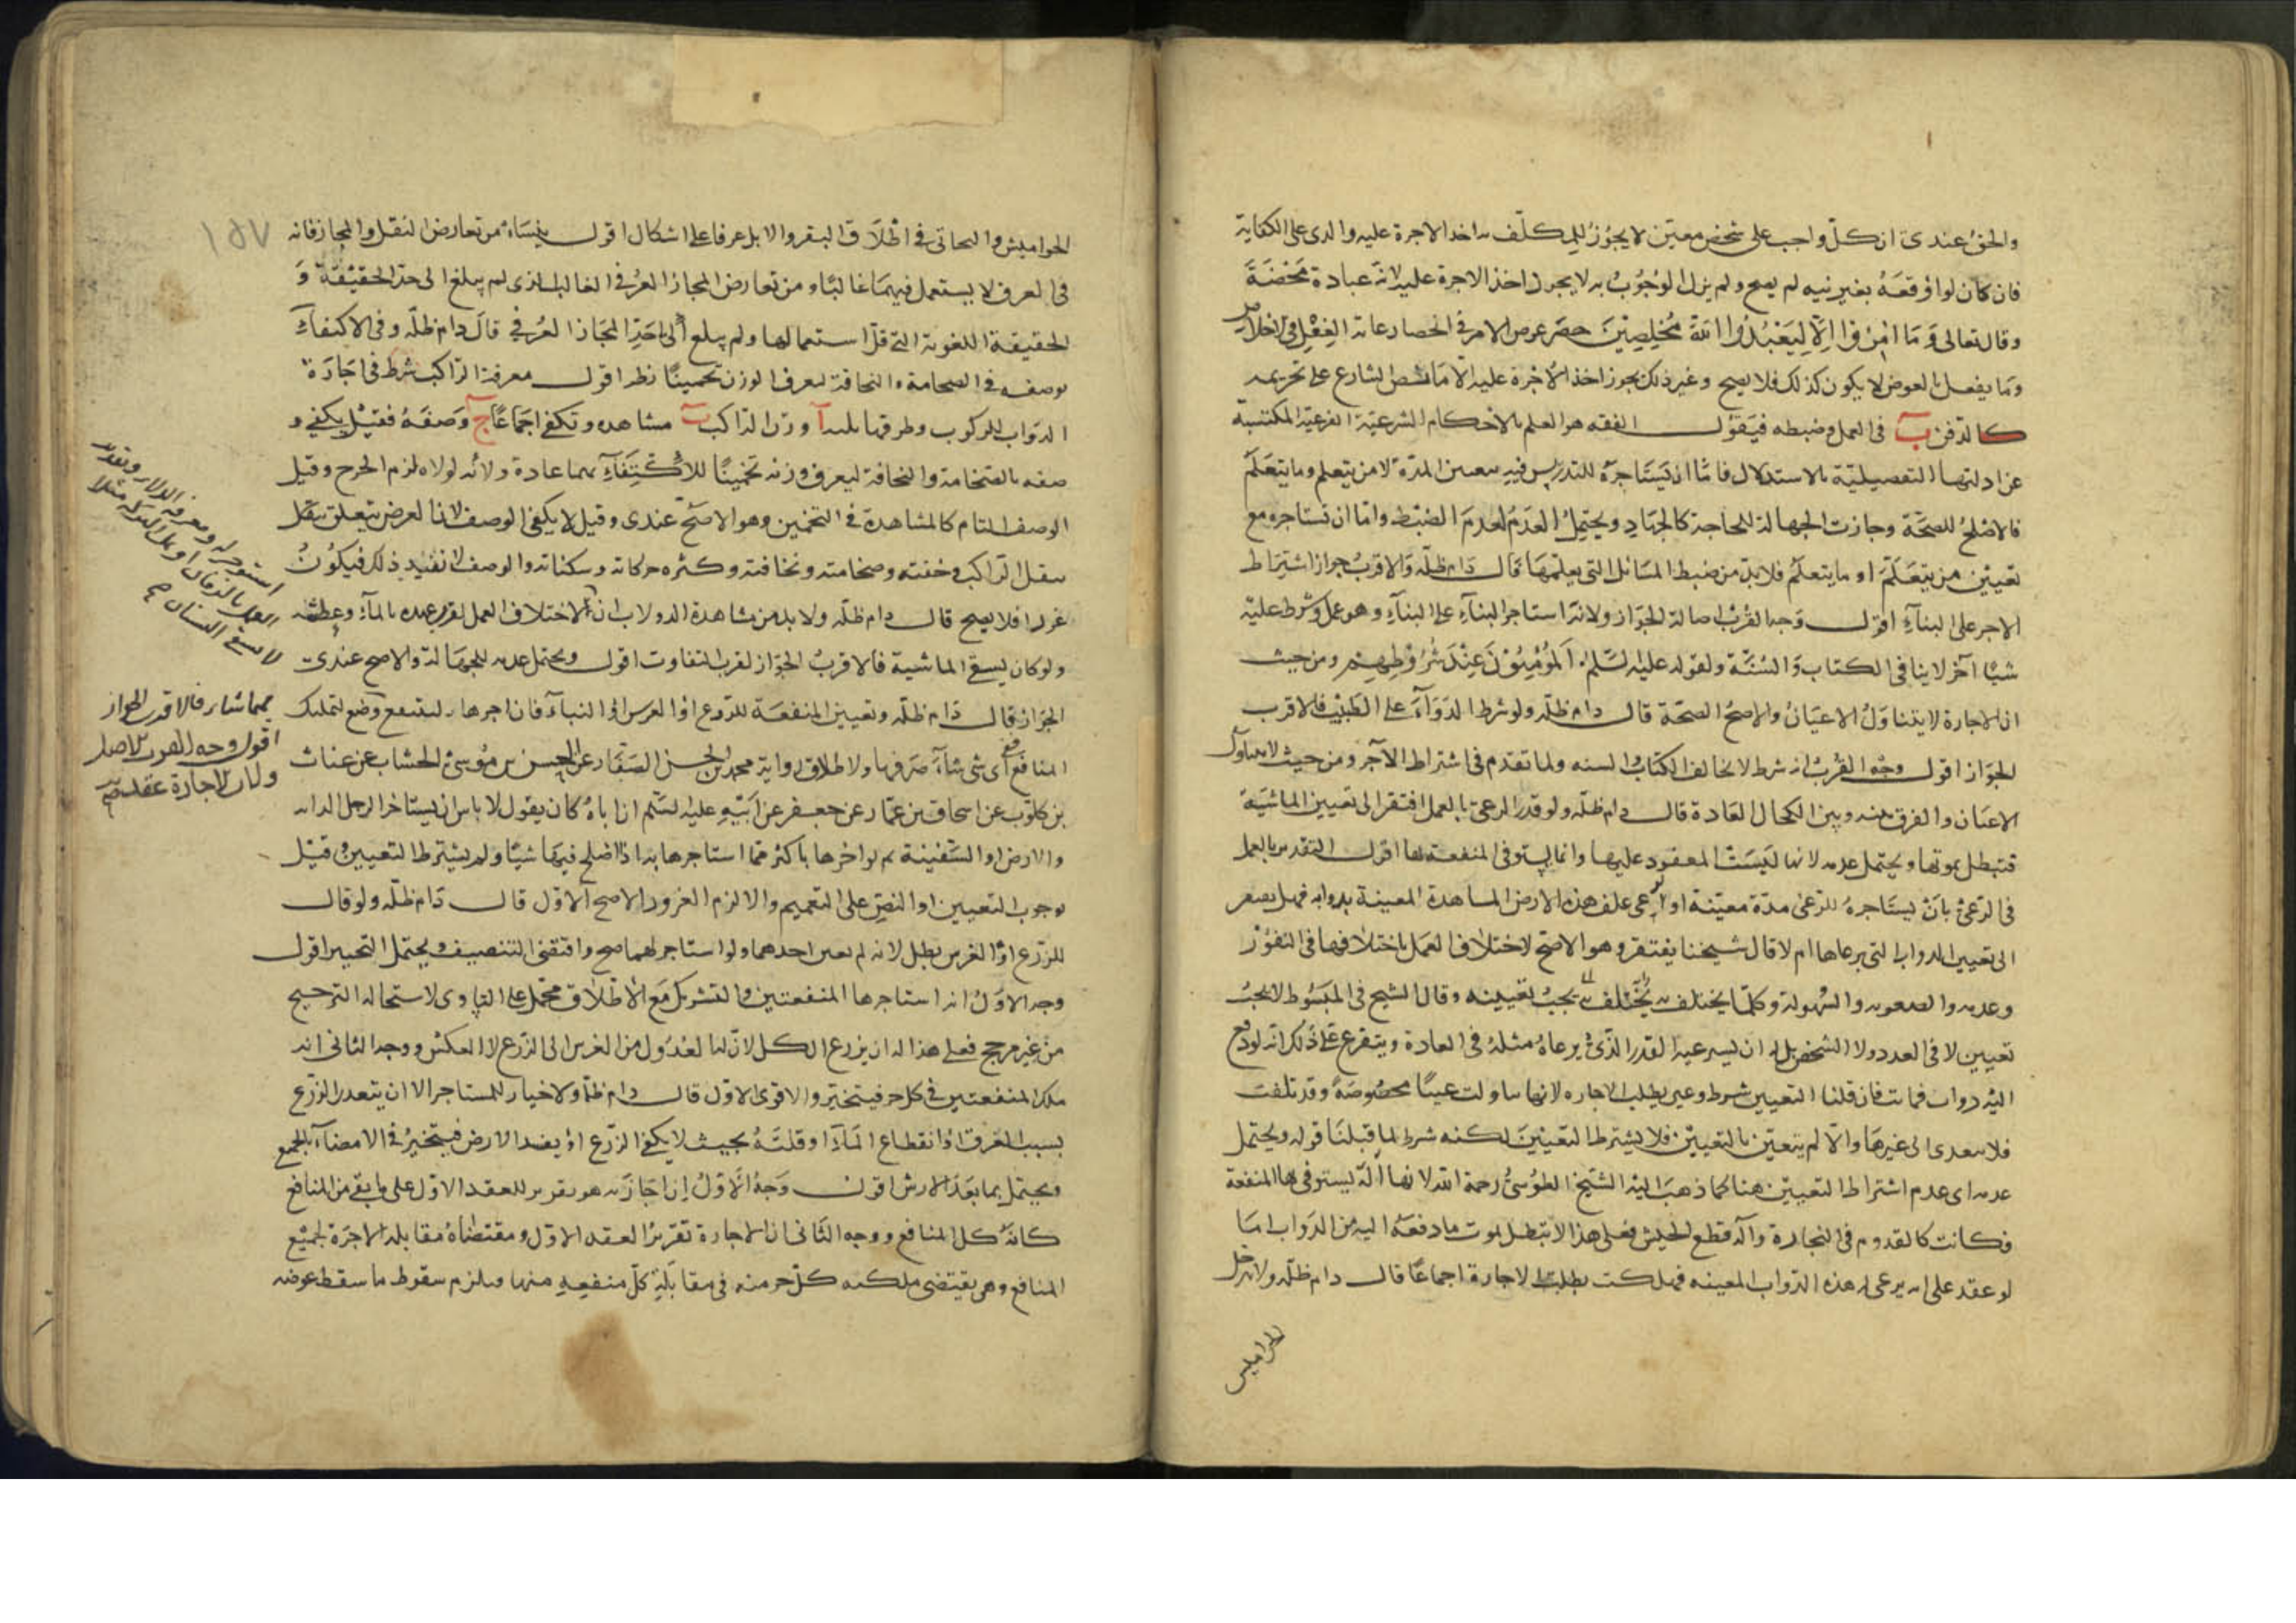 والحق عندى ان كل واجب على شخص معين لا يجوز للمكلف اخذ الاجرة عليه والذى على الكفاية
فان كان لو اوقعه بغير نيه لم يصح ولم يزل الوجوب به لا يجوز اخذ الاجرة عليه لانه عبادة محضة
وقال تعالى وما امروا الا ليعبدوا الله مخلصين حصر غرض الامر فى انحصار غاية الفعل فى الاخلاص
وما يفعل بالعوض لا يكون كذلك فلا يصح وغير ذلك يجوز اخذ الاجرة عليه الا ما نص الشارع على تحريمه
كالدفن ب فى العمل وضبطه فيقول الفقه هو العلم بالاحكام الشرعية الفرعية المكتسبة
عن ادلتها التفصيلية بالاستدلال فاما ان يستاجره للتدريس فيه معين المدة لا من يتعلم وما يتعلم
فالاصلح للصحة وجازت الجهالة للحاجة كالجهاد ويحتمل العدم لعدم الضبط واما ان نستاجره مع
تعيين من يتعلم او ما يتعلم فلا بد من ضبط المسائل التى يعلمها قال دام ظله والاقرب جواز اشتراط
الاجر على البناء اقول وجه القرب اصالة الجواز ولانه استاجر البناء على البناء وهو عمل وشرط عليه
شيا آخر لا ينافى الكتاب والسنة ولقوله عليه السلم المؤمنون عند شروطهم ومن حيث
ان الاجارة لا يتناول الاعيان والاصح الصحة قال دام ظله ولو شرط الدواء على الطبيب فالاقرب
الجواز اقول وجه القرب انه شرط لا يخالف الكتاب والسنه ولما تقدم فى اشتراط الآجر ومن حيث لا يتناول
الاعيان والفرق بينه وبين الكحال العادة قال دام ظله ولو قدر الرعى بالعمل افتقر الى تعيين الماشية
فتبطل بموتها ويحتمل عدمه لانها ليست المعقود عليها وانما يستوفى المنفعة بها اقول التقدير بالعمل
فى الرعى بان يستاجره للرعى مدة معينة او لرعى علف هذه الارض المشاهدة المعينة بدوابه فهل يفتقر
الى تعيين الدواب التى يرعاها ام لا قال شيخنا يفتقر وهو الاصح لاختلاف العمل باختلافها فى النفور
وعدمه والصعوبه والسهولة وكلما يختلف به يختلف يجب تعيينه وقال الشيخ فى المبسوط لا يجب
تعيين لا فى العدد ولا الشخص بل له ان يسرعيه القدر الذى يرعاه مثله فى العادة ويتفرع على ذلك انه لو دفع
اليه دواب فماتت فان قلنا التعيين شرط وعين بطلت الاجاره لانها تناولت عينا مخصوصة وقد تلفت
فلا يتعدى الى غيرها والا لم يتعين بالتعيين فلا يشترط التعيين لكنه شرط لما قبلنا قوله ويحتمل
عدمه اى عدم اشتراط التعيين هنا كما ذهب اليه الشيخ الطوسى رحمة الله لانها آلة يستوفى بها المنفعة
فكانت كالقدوم فى النجارة وآلة قطع الحشيش فعلى هذا لا تبطل بموت ما دفعه اليه من الدواب اما
لو عقد على ان يرعى له هذه الدواب المعينه فهلكت بطلت الاجارة اجماعا قال دام ظله ولا يدخل
الجواميس
١٥٧
الجواميس والبخاتى فى اطلاق البقر والابل عرفا على اشكال اقول ينشاء من تعارض النقل والمجاز فانه
فى العرف لا يستعمل فيهما غالبا ومن تعارض المجاز العرفى الغالب الذى لم يبلغ الى حد الحقيقة و
الحقيقة اللغوية التى قل استعمالها ولم يبلغ الى حد المجاز العرفى قال دام ظله وفى الاكتفاء
بوصفه فى الضخامة والنحافة ليعرف الوزن تخمينا نظر اقول معرفة الراكب شرط فى اجارة
الدواب للركوب وطرقها ثلاثة آ وزن الراكب ب مشاهدته وتكفى اجماعا ج وصفه فقيل يكفى و
صفه بالضخامة والنحافة ليعرف وزنه تخمينا للاكتفاء بهما عادة ولانه لولاه لزم الحرج وقيل
الوصف التام كالمشاهدة فى التخمين وهو الاصح عندى وقيل لا يكفى الوصف لان الغرض يتعلق بثقل
الراكب وخفته وضخامته ونحافته وكثره حركاته وسكناته والوصف لا يفيد ذلك فيكون
غررا فلا يصح قال دام ظله ولا بد من مشاهدة الدولاب لاختلاف العمل لقرب عهده بالماء وعطشه
ولو كان يسقى الماشية فالاقرب الجواز لقرب التفاوت اقول ويحتمل عدمه للجهالة والاصح عندى
الجواز قال دام ظله وتعيين المنفعة للزرع او الغرس او البناء فان اجرها لينتفع وضع لتمليك
المنافع اى شى شاء صرفها ولاطلاق رواية محمد بن الحسن الصفار عن الحسن بن موسى الخشاب عن غياث
بن كلوب عن اسحاق بن عمار عن جعفر عن ابيه عليه السلم ان اباه كان يقول لا باس ان يستاجر الرجل الدار
والارض او السفينة ثم يواجرها باكثر مما استاجرها به اذا اصلح فيها شيا ولم يشترط التعيين وقيل
بوجوب التعيين او النص على التعميم والا لزم الغرور والاصح الاول قال دام ظله ولو قال
للزرع او الغرس بطل لانه لم يعين احدهما ولو استاجر لهما صح واقتضى التنصيف ويحتمل التخيير اقول
وجه الاول انه استاجرها المنفعتين والتشريك مع الاطلاق محمول على التساوى لاستحاله الترجيح
من غير مرجح فعلى هذا له ان يزرع الكل لان له العدول من الغرس الى الزرع لا العكس ووجه الثانى انه
ملك المنفعتين فى كل جزء فيتخير والاقوى الاول قال دام ظله ولا خيار للمستاجر الا ان يتعذر الزرع
بسبب الغرق او انقطاع الماء او قلته بحيث لا يكفى الزرع او يفسد الارض فيتخير فى الامضاء بالجميع
ويحتمل بما بعد الارش اقول وجه الاول ان اجازته هو تقرير للعقد الاول على ما بقى من المنافع
كانه كل المنافع ووجه الثانى ان الاجارة تقرير العقد الاول ومقتضاه مقابلة الاجرة لجميع
المنافع وهى يقتضى ملكه كل جزء منه فى مقابلة كل منفعة منها فيلزم سقوط ما سقط عوضه
مهما شاء فالاقرب الجواز
اقول وجه القرب الاصل
ولان الاجارة عقد